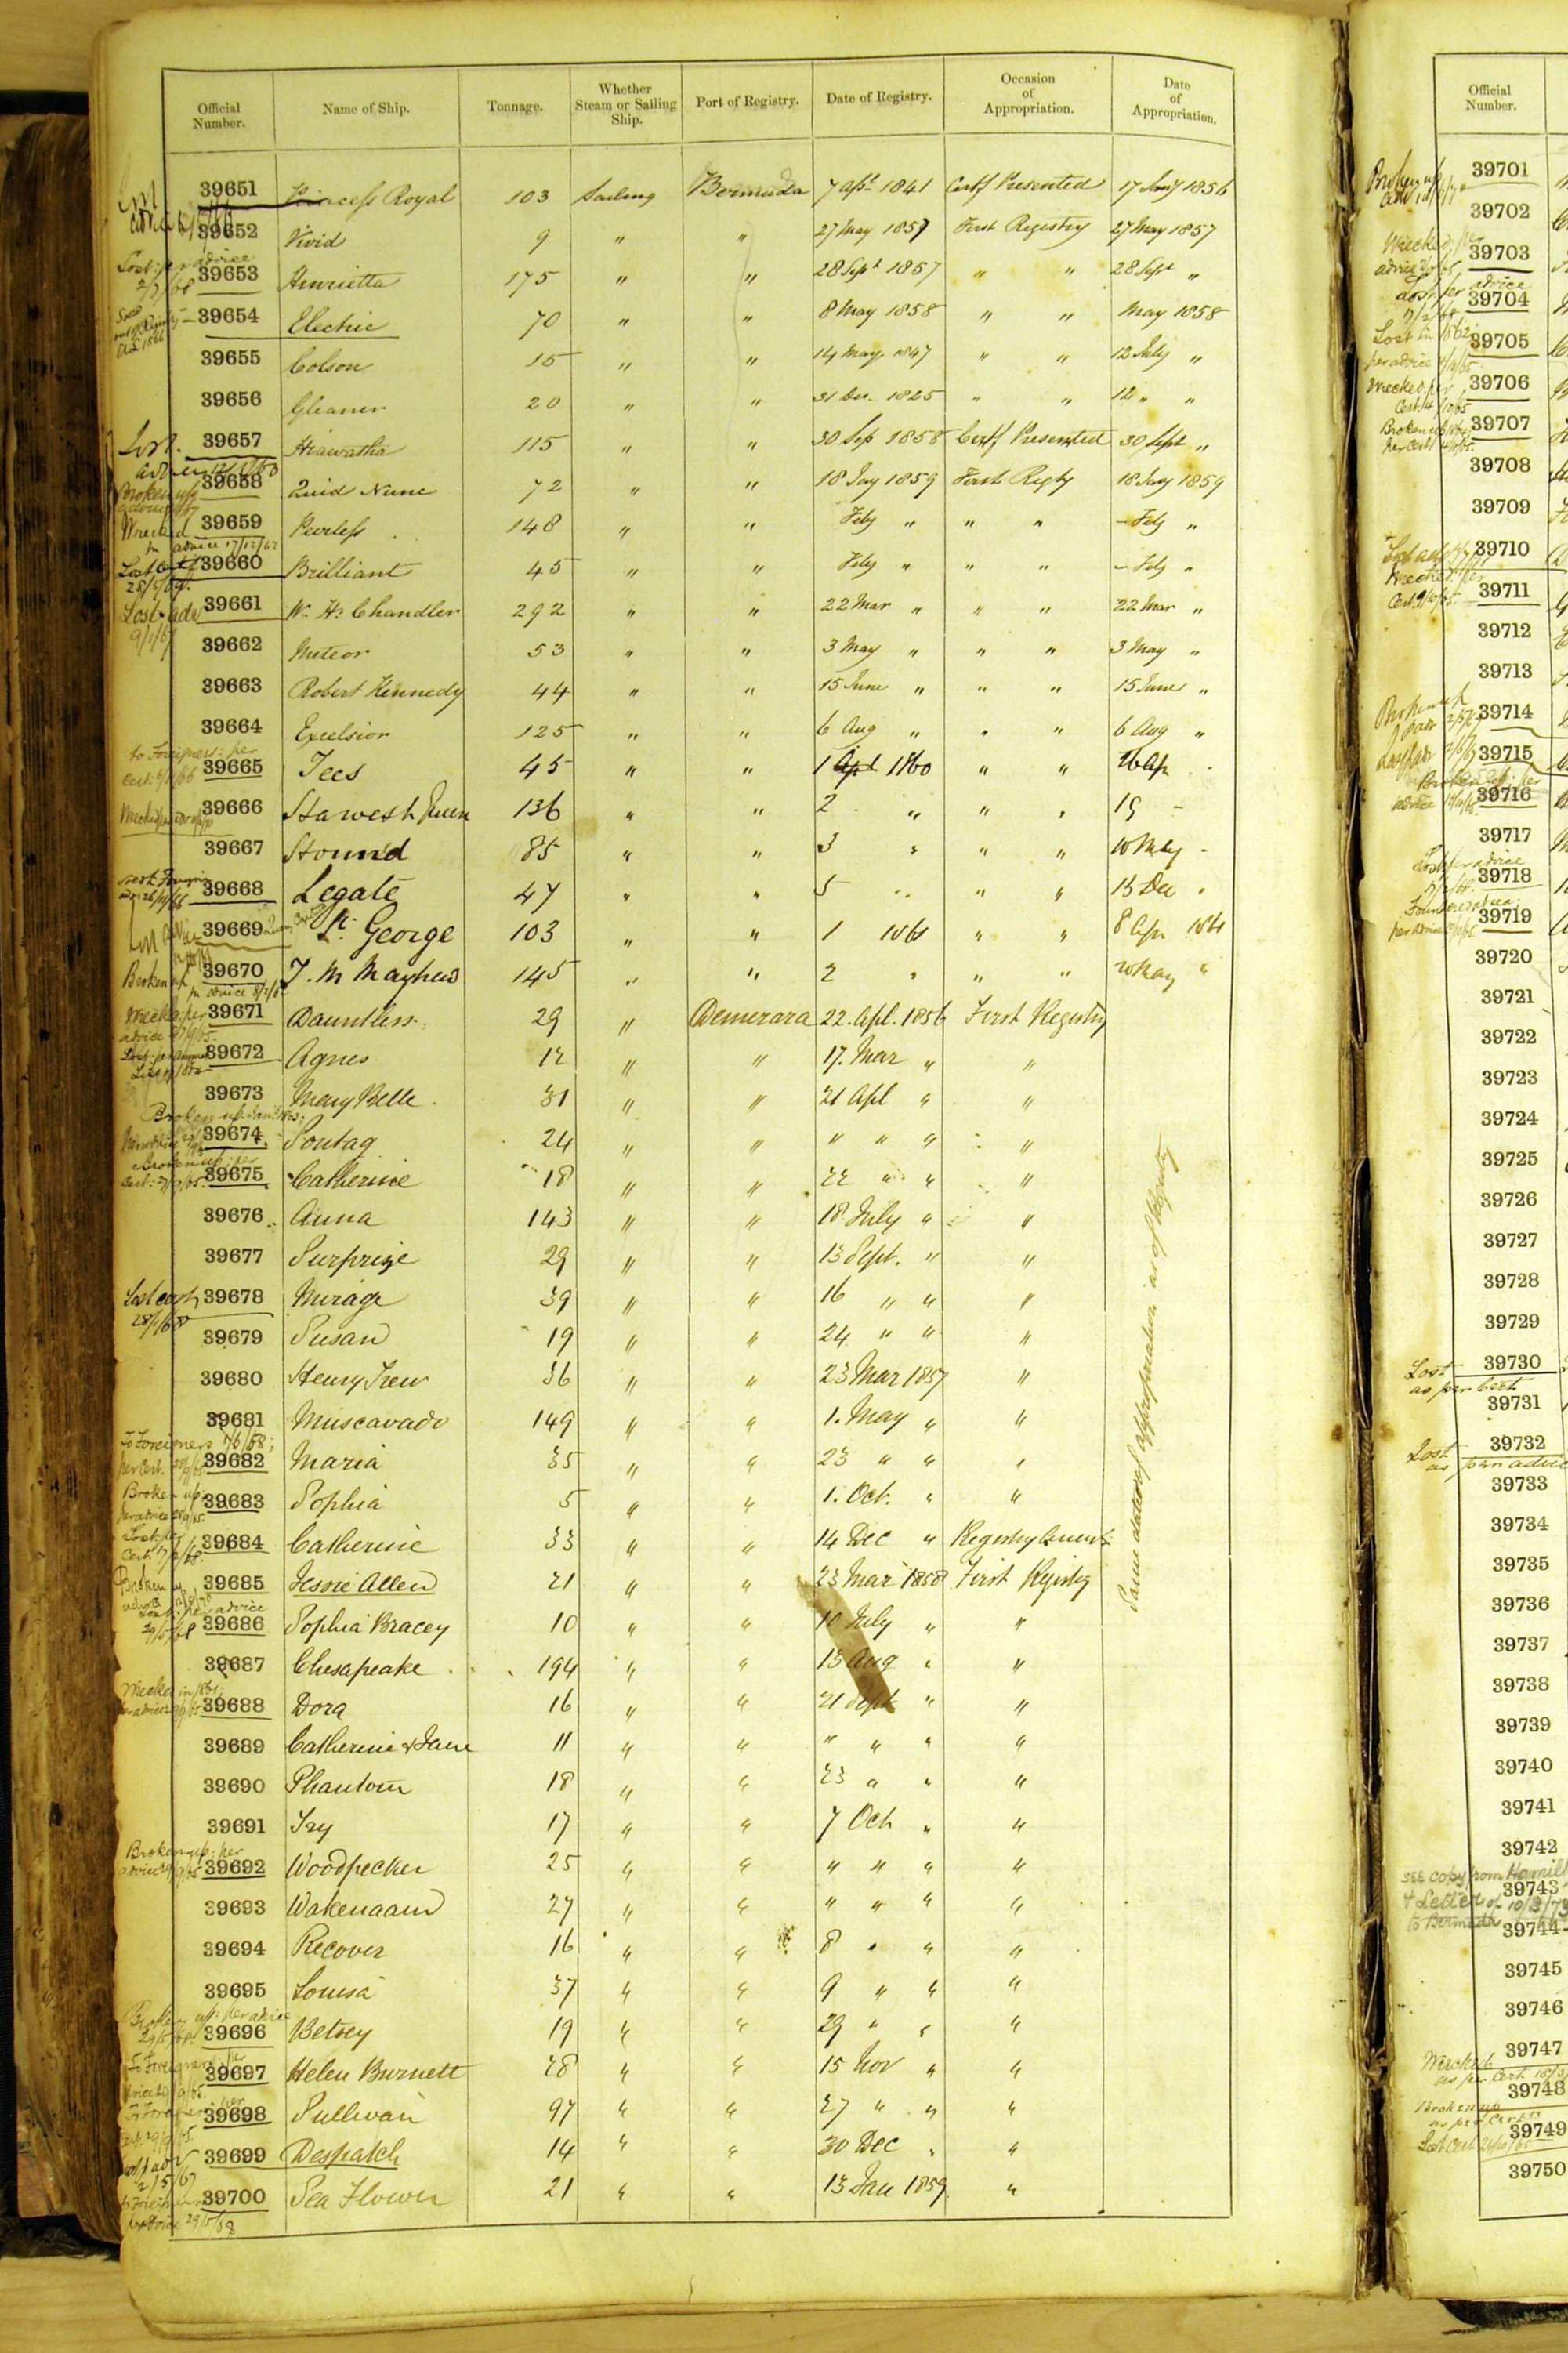 Official Number. Name of Ship. Tonnage. Whether Steam or Sailing Ship. Port of Registry. Date of Registry. Occasion of Appropriation. Date of Appropriation.
39651 Princess Royal 103 Sailing Bermuda 7 Apl 1841 Certf Presented 17 Jany 1856
39652 Vivid 9 " " 27 May 1857 First Registry 27 May 1857
Lost: per advice 2/7/68
39653 Henrietta 175 " " 28 Sept 1857 " " 28 Sept "
39654 Electric 70 " " 8 May 1858 " " May 1858
39655 Colson 15 " " 14 May 1847 " " 12 July "
39656 Gleaner 20 " " 31 Dec. 1825 " " 12 " "
Lost.
39657 Hiawatha 115 " " 30 Sep 1858 Certf Presented 30 Sept "
Broken up
39658 Quid Nunc 72 " " 18 Jay 1859 First Regty 18 Jany 1859
Wrecked pr advice 17/12/62
39659 Peerless 148 " " Feby " " " - Feby "
Lost Certf
39660 Brilliant 45 " " Feby " " " - Feby "
Lost adv 9/1/67
39661 W. H. Chandler 292 " " 22 Mar " " " 22 Mar "
39662 Meteor 53 " " 3 May " " " 3 May "
39663 Robert Kennedy 44 " " 15 June " " " 15 June "
39664 Excelsior 125 " " 6 Aug " " " 6 Aug "
to Foreigners: per
39665 Tees 45 " " 1 Apl 1860 " " 26 Ap
39666 136 " " 2 " " " 19 -
39667 85 " " 3 " " " 10 May -
39668 Legate 47 " " 5 " " " 13 Dec "
39669 St. George 103 " " 1 1861 " " 8 Apr 1861
Broken up pr advice
39670 T. M Mayhew 145 " " 2 " " " 20 May "
Wrecked: per advice
39671 Dauntless 29 " Demerara 22. Apl. 1856 First Registry
39672 Agnes 12 " " 17. Mar " "
39673 Mary Belle 31 " " 21 Apl " "
Broken up
39674 Sontag 24 " " " " " "
Broken up: per
39675 Catherine 18 " " 22 " " "
39676 Anna 143 " " 18 July " "
39677 Surprize 29 " " 13 Sept. " "
Lost
39678 Mirage 39 " " 16 " " "
39679 Susan 19 " " 24 " " "
39680 Henry Trew 36 " " 23 Mar 1857 "
39681 Muscavado 149 " " 1. May " "
To Foreigners
39682 Maria 35 " " 23 " " "
Broken up:
39683 Sophia 5 " " 1. Oct. " "
39684 Catherine 33 " " 14 Dec " Registry Anew
39685 Jessie Allen 21 " " 23 Mar 1858 First Registry
Same dates of appropriation as of Registry
39686 Sophia Bracey 10 " " 10 July " "
39687 Chesapeake 194 " " 15 Aug " "
Wrecked in 1861;
39688 Dora 16 " " 21 Sept " "
39689 Catherine & Jane 11 " " " " " "
39690 Phantom 18 " " 23 " " "
39691 Try 17 " " 7 Oct " "
Broken up: per
39692 Woodpecker 25 " " " " " "
39693 Wakenaam 27 " " " " " "
39694 Recover 16 " " 8 " " "
39695 Louisa 37 " " 9 " " "
Broken up: per advice
39696 Betsey 19 " " 29 " " "
To Foreigners: per
39697 Helen Burnett 28 " " 15 Nov " "
39698 Sullivan 97 " " 27 " " "
39699 Despatch 14 " " 30 Dec " "
39700 Sea Flower 21 " " 13 Jan 1859 "
Official Number.
39701
39702
Wrecked: per
39703
Lost per advice
39704
Lost in 1862: per advice
39705
Wrecked: per
39706
Broken up
39707
39708
39709
39710
Wrecked: per
39711
39712
39713
39714
39715
Broken up: per advice
39716
39717
Lost per advice
39718
Foundered at sea: per advice
39719
39720
39721
39722
39723
39724
39725
39726
39727
39728
39729
Lost
39730
as per Cert
39731
Lost
39732
as per advice
39733
39734
39735
39736
39737
39738
39739
39740
39741
39742
see copy from Hamil
39743
& Letter of 10/3/73
to Bermuda
39744
39745
39746
39747
Wrecked as per Cert
39748
Broken up as per Cert
39749
Lost Cert
39750